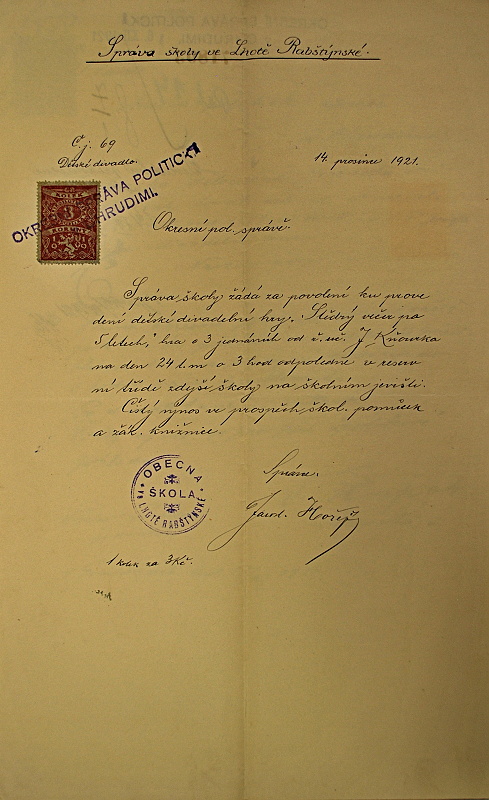 Správa školy ve Lhotě Rabštýnské.
Č. j. 69
Dětské divadlo.
14. prosince 1921.
OKRESNÍ SPRÁVA POLITICKÁ
V CHRUDIMI.
3
Okresní pol. správě.
Správa školy žádá za povolení ku prove
dení dětské divadelní hry. Štědrý večer po
5 letech, hra o 3 jednáních od ř. uč. J. Kňourka
na den 24 t. m. o 3 hod odpoledne v reserv
ní třídě zdejší školy na školním jevišti.
Čistý výnos ve prospěch škol. pomůcek
a žák. knižnice.
OBECNÁ
ŠKOLA
VE LHOTĚ RABŠTÝNSKÉ
Správce.
Jarosl.
1 kolek za 3 Kč.